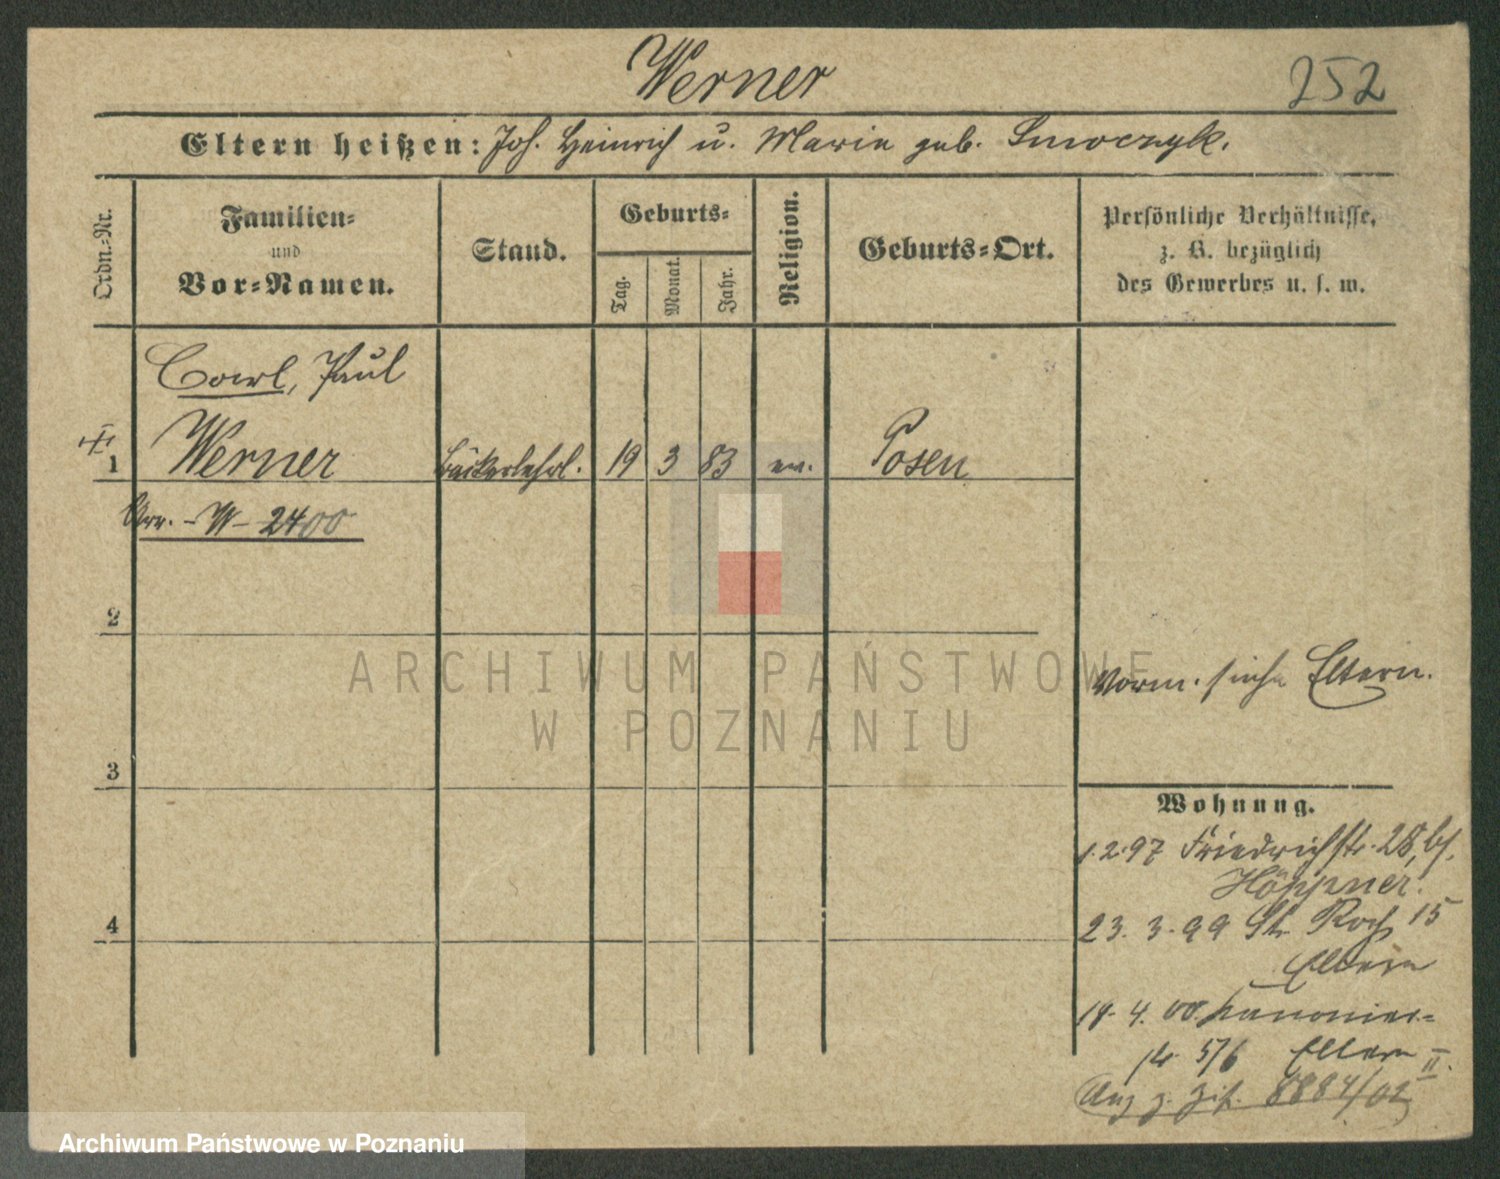 Werner
252
Eltern heißen: Joh. Heinrich u. Marie geb. Smoczyk.
Ordn.-Nr.
Familien-
und
Vor-Namen.
Stand.
Geburts-
Tag.
Monat.
Jahr.
Religion.
Geburts-Ort.
Persönliche Verhältnisse,
z. B. bezüglich
des Gewerbes u. s. w.
Carl, Paul
1 Werner Bäckerlehrl. 19 3 83 ev. Posen
- W - 2400
2
ARCHIWUM PAŃSTWOWE
W POZNANIU
Vorm. siehe Eltern.
3
Wohnung.
1.2.97 Friedrichstr. 28, bs.
Höppner.
23. 3. 99 St. Roch 15
4
Eltern
19. 4. 00. Kanonier-
str. 5/6 Eltern II.
8884/02
Archiwum Państwowe w Poznaniu